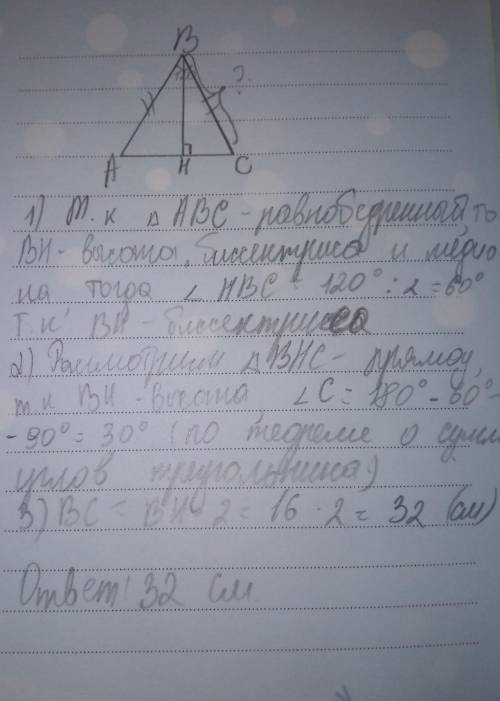 B
?
A H C
1) Т.к △ ABC - равнобедренный, то
BH - высота, биссектриса и медиа
на тогда ∠ HBC = 120° : 2 = 60°
т.к BH - биссектриса
2) Рассмотрим △BHC - прямоу,
т.к BH - высота ∠C = 180° - 60° -
- 90° = 30° (по теореме о сумме
углов треугольника)
3) BC = BH · 2 = 16 · 2 = 32 (см)
Ответ: 32 см